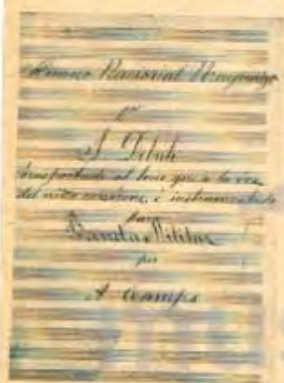 Himno Nacional Uruguayo
por
S Debali
transportado al tono que a la voz
del niño conviene, é instrumentado
para
Banda Militar
por
A Camps